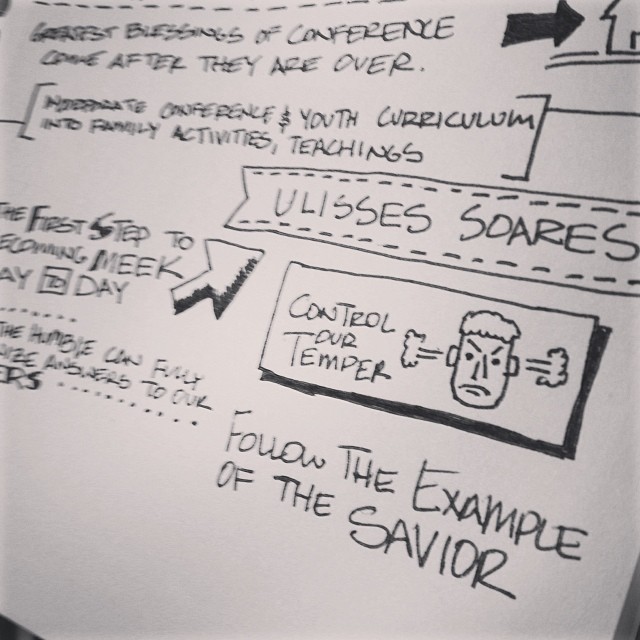 GREATEST BLESSINGS OF CONFERENCE
COME AFTER THEY ARE OVER.
INCORPORATE CONFERENCE & YOUTH CURRICULUM
INTO FAMILY ACTIVITIES, TEACHINGS
ULISSES SOARES
THE FIRST STEP TO
ECOMING MEEK
AY TO DAY
THE HUMBLE CAN FULLY
ANSWERS TO OUR
ERS
CONTROL
OUR
TEMPER
FOLLOW THE EXAMPLE
OF THE
SAVIOR